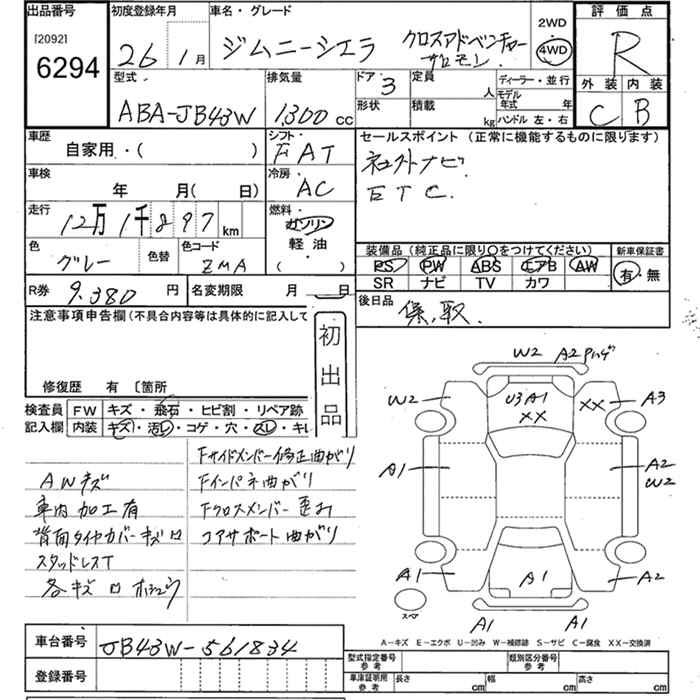 出品番号
[2092]
6294
初度登録年月
26 1月
車名・グレード
ジムニーシエラ
クロスアドベンチャー
2WD
4WD
評価点
R
外装 内装
C B
型式
ABA-JB43W
排気量
1,300 cc
ドア 3
形状
定員 人
積載 kg
ディーラー・並行
モデル年式 年
ハンドル 左・右
車歴
自家用・( )
シフト
FAT
セールスポイント (正常に機能するものに限ります)
ナビ
ETC.
車検
年 月( 日)
冷房
AC
走行
12万1千897 km
燃料
ガソリン
軽油
( )
色
グレー
色替
色コード
ZMA
装備品(純正品に限り○をつけてください)
PS PW ABS エアB AW
SR ナビ TV カワ
新車保証書
有・無
R券 9,380 円
名変期限 月 日
後日品
保、取.
注意事項申告欄(不具合内容等は具体的に記入して
初出品
修復歴 有 〔箇所
検査員記入欄
FW キズ・飛石・ヒビ割・リペア跡
内装 キズ・汚レ・コゲ・穴・スレ・キレ
Fサイドメンバー修正曲がり
AWキズ
Fインパネ曲がり
車内加工有
Fクロスメンバー歪み
背面タイヤカバーキズロ
コアサポート曲がり
スタッドレスT
各キズロ
W2 A2
W2
U3 A1
XX
XX
A3
A1
A2
W2
A1
A1
A2
スペア
A1 A1
A－キズ E－エクボ U－凹み W－補修跡 S－サビ C－腐食 XX－交換済
車台番号 JB43W-561834
登録番号
型式指定番号 参考
類別区分番号 参考
車庫証明用 参考
長さ cm
幅 cm
高さ cm